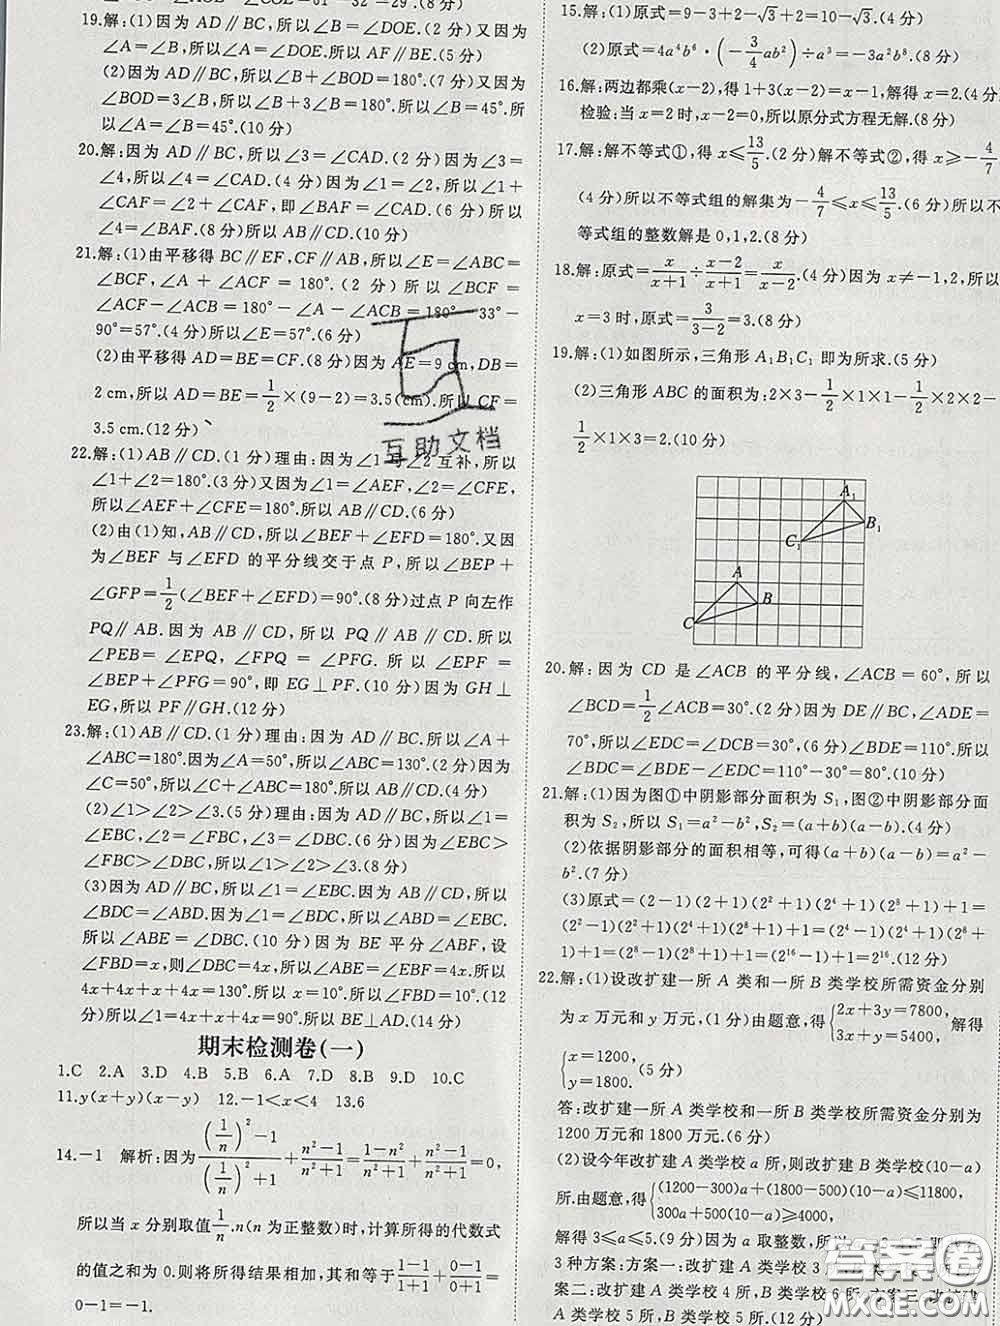 19.解:(1)因为 AO∥BD,所以∠B=∠DOE.(2分)又因为
∠A=∠B,所以∠A=∠DOE.所以 AF∥BE.(5分)
(2)因为 AD∥BC,所以∠B+∠BOD=180°.(7分)又因为
∠BOD=3∠B,所以∠B+3∠B=180°.所以∠B=45°.所
以∠A=∠B=45°.(10分)
20.解:因为 AD∥BC,所以∠3=∠CAD.(2分)因为∠3=
∠4,所以∠4=∠CAD.(4分)因为∠1=∠2,所以∠1+
∠CAF=∠2+∠CAF,即∠BAF=∠CAD.(6分)所以
∠4=∠BAF.(8分)所以 AB∥CD.(10分)
21.解:(1)由平移得 BC∥EF,CF∥AB,所以∠E=∠ABC=
∠BCF,∠A+∠ACF=180°.(2分)所以∠BCF=
∠ACF-∠ACB=180°-∠A-∠ACB=180°-33°-
90°=57°.(4分)所以∠E=57°.(6分)
(2)由平移得 AD=BE=CF.(8分)因为 AE=9 cm,DB=
2 cm,所以 AD=BE=1/2×(9-2)=3.5(cm).所以 CF=
3.5 cm.(12分)
22.解:(1)AB∥CD.(1分)理由:因为∠1与∠2互补,所以
∠1+∠2=180°.(3分)又因为∠1=∠AEF,∠2=∠CFE,
所以∠AEF+∠CFE=180°.所以 AB∥CD.(6分)
(2)由(1)知,AB∥CD,所以∠BEF+∠EFD=180°.又因
为∠BEF 与∠EFD 的平分线交于点 P,所以∠BEP+
∠GFP=1/2(∠BEF+∠EFD)=90°.(8分)过点 P 向左作
PQ∥AB.因为 AB∥CD,所以 PQ∥AB∥CD.所以
∠PEB=∠EPQ,∠FPQ=∠PFG.所以∠EPF=
∠BEP+∠PFG=90°,即 EG⊥PF.(10分)因为 GH⊥
EG,所以 PF∥GH.(12分)
23.解:(1)AB∥CD.(1分)理由:因为 AD∥BC.所以∠A+
∠ABC=180°.因为∠A=50°,所以∠ABC=130°.(2分)因为
∠C=50°,所以∠C+∠ABC=180°.所以 AB∥CD.(4分)
(2)∠1>∠2>∠3.(5分)理由:因为 AD∥BC,所以∠1=
∠EBC,∠2=∠FBC,∠3=∠DBC.(6分)因为∠EBC>
∠FBC>∠DBC,所以∠1>∠2>∠3.(8分)
(3)因为 AD∥BC,所以∠1=∠EBC.因为 AB∥CD,所以
∠BDC=∠ABD.因为∠1=∠BDC,所以∠ABD=∠EBC.
所以∠ABE=∠DBC.(10分)因为 BE 平分∠ABF,设
∠FBD=x,则∠DBC=4x,所以∠ABE=∠EBF=4x.所以
4x+4x+x+4x=130°.所以 x=10°.所以∠FBD=10°.(12
分)所以∠1+4x+4x=90°.所以 BE⊥AD.(14分)
期末检测卷(一)
1.C 2.A 3.D 4.B 5.B 6.A 7.D 8.B 9.D 10.C
11.y(x+y)(x-y) 12.-1<x<4 13.6
14.-1 解析:因为((1/n)²-1)/((1/n)²+1)+(n²-1)/(n²+1)=(1-n²)/(1+n²)+(n²-1)/(n²+1)=0,
所以当 x 分别取值1/n,n(n 为正整数)时,计算所得的代数式
的值之和为 0.则将所得结果相加,其和等于(1-1)/(1+1)+(0-1)/(0+1)=
0-1=-1.
15.解:(1)原式=9-3+2-√3+√3=10-√3.(4分)
(2)原式=4a⁴b⁶·(-3/4ab²)÷a³=-3a²b⁸.(8分)
16.解:两边都乘(x-2),得 1+3(x-2)=x-1,解得 x=2.(4分)
检验:当 x=2时,x-2=0,所以原分式方程无解.(8分)
17.解:解不等式①,得 x≤13/5.(2分)解不等式②,得 x≥-4/7
(4分)所以不等式组的解集为-4/7≤x≤13/5.(6分)所以不
等式组的整数解是 0,1,2.(8分)
18.解:原式=x/(x+1)÷(x-2)/(x+1)=x/(x-2).(4分)因为 x≠-1,2,所以
x=3时,原式=3/(3-2)=3.(8分)
19.解:(1)如图所示,三角形 A₁B₁C₁ 即为所求.(5分)
(2)三角形 ABC 的面积为:2×3-1/2×1×1-1/2×2×2-
1/2×1×3=2.(10分)
A₁
B₁
C₁
A
B
C
20.解:因为 CD 是∠ACB 的平分线,∠ACB=60°,所以
∠BCD=1/2∠ACB=30°.(2分)因为 DE∥BC,∠ADE=
70°,所以∠EDC=∠DCB=30°,(6分)∠BDE=110°.所以
∠BDC=∠BDE-∠EDC=110°-30°=80°.(10分)
21.解:(1)因为图①中阴影部分面积为 S₁,图②中阴影部分面
积为 S₂,所以 S₁=a²-b²,S₂=(a+b)(a-b).(4分)
(2)依据阴影部分的面积相等,可得(a+b)(a-b)=a²-
b².(7分)
(3)原式=(2-1)(2+1)(2²+1)(2⁴+1)(2⁸+1)+1=
(2²-1)(2²+1)(2⁴+1)(2⁸+1)+1=(2⁴-1)(2⁴+1)(2⁸+
1)+1=(2⁸-1)(2⁸+1)+1=2¹⁶-1+1=2¹⁶.(12分)
22.解:(1)设改扩建一所 A 类和一所 B 类学校所需资金分别
为 x 万元和 y 万元,(1分)由题意,得{2x+3y=7800, 3x+y=5400, 解得
{x=1200, y=1800. (5分)
答:改扩建一所 A 类学校和一所 B 类学校所需资金分别为
1200万元和1800万元.(6分)
(2)设今年改扩建 A 类学校 a 所,则改扩建 B 类学校(10-a)
所.由题意,得{(1200-300)a+(1800-500)(10-a)≤11800, 300a+500(10-a)≥4000,
解得 3≤a≤5.(9分)因为 a 取整数,所以
3种方案:方案一:改扩建 A 类学校3所,
案二:改扩建 A 类学校4所,B类学校6所,方案三:改扩建
A 类学校5所,B类学校5所.(12分)
互助文档
答案圈
MXQE.COM